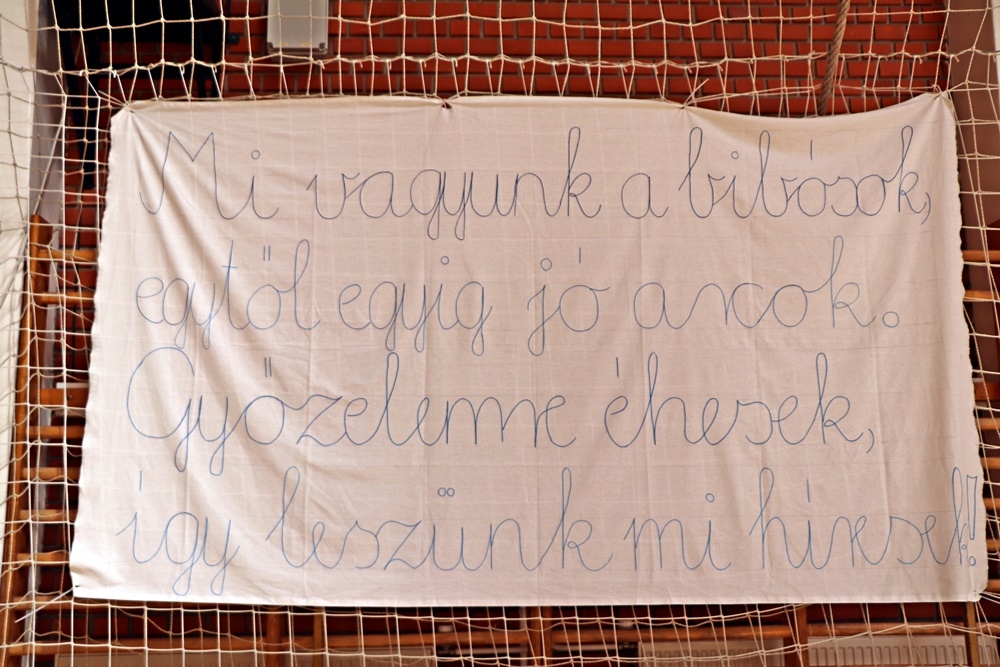 Mi vagyunk a bibósok,
egytől egyig jó arcok.
Győzelemre éhesek,
így leszünk mi híresek!